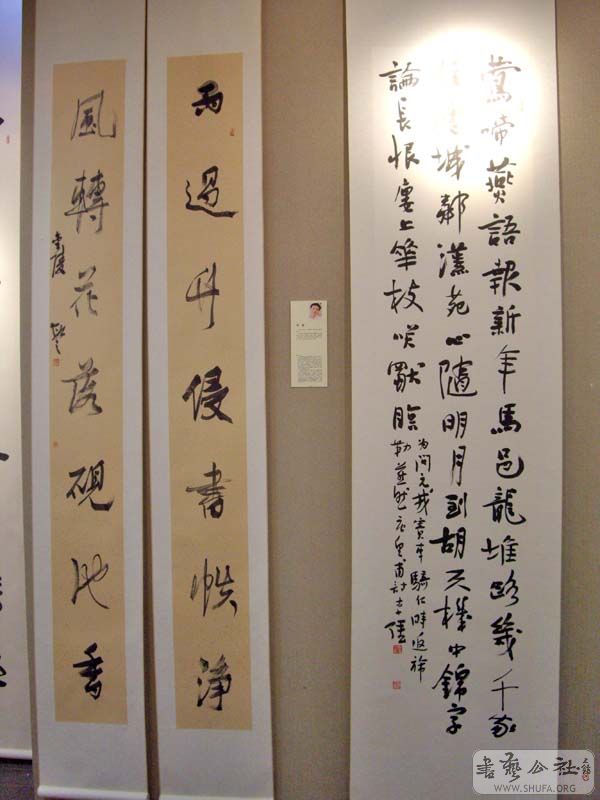 鶯啼燕語報新年馬邑龍堆路幾千家
住層城鄰漢苑心隨明月到胡天機中錦字
論長恨廔上華枝笑獨眠
为问元戎竇車騎何時返旆
勒燕然
雨過竹侵書帙淨
風轉花落硯池香
書藝公社
WWW.SHUFA.ORG